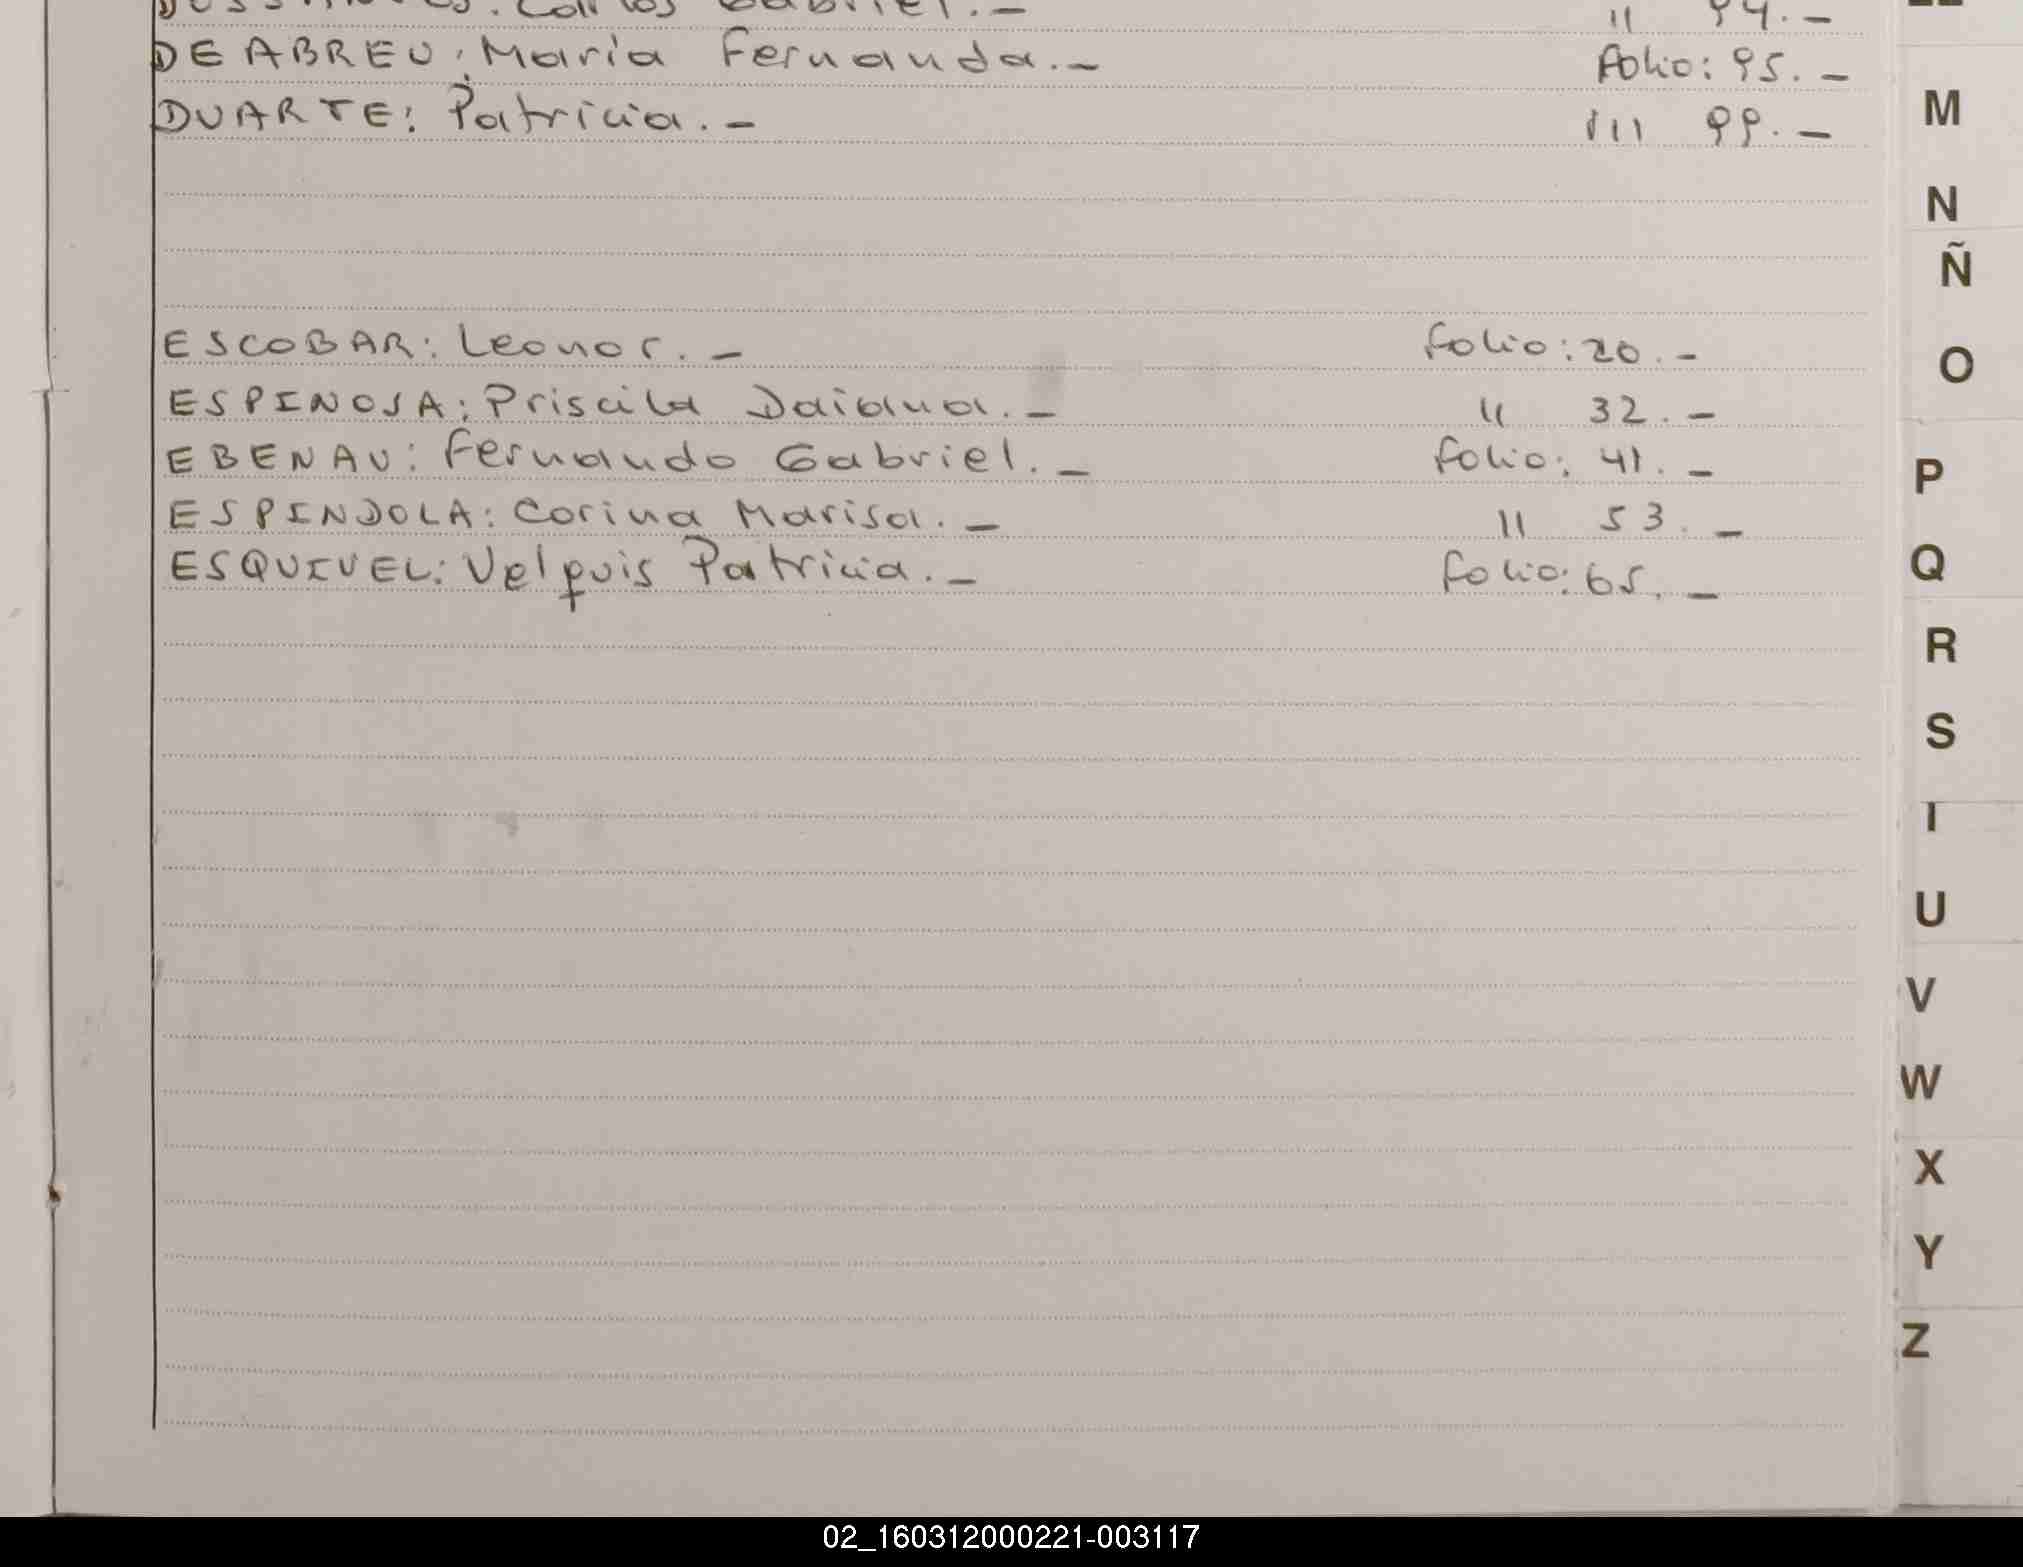 Carlos Gabriel.- " 94.-
DE ABREU: María Fernanda.- Folio: 95.-
DUARTE: Patricia.- 111 99.-
ESCOBAR: Leonor.- folio: 20.-
ESPINOSA: Priscila Daiana.- " 32.-
EBENAU: Fernando Gabriel.- folio: 41.-
ESPINDOLA: Corina Marisa.- " 53.-
ESQUIVEL: Velquis Patricia.- folio: 65.-
M
N
Ñ
O
P
Q
R
S
U
V
W
X
Y
Z
02_160312000221-003117